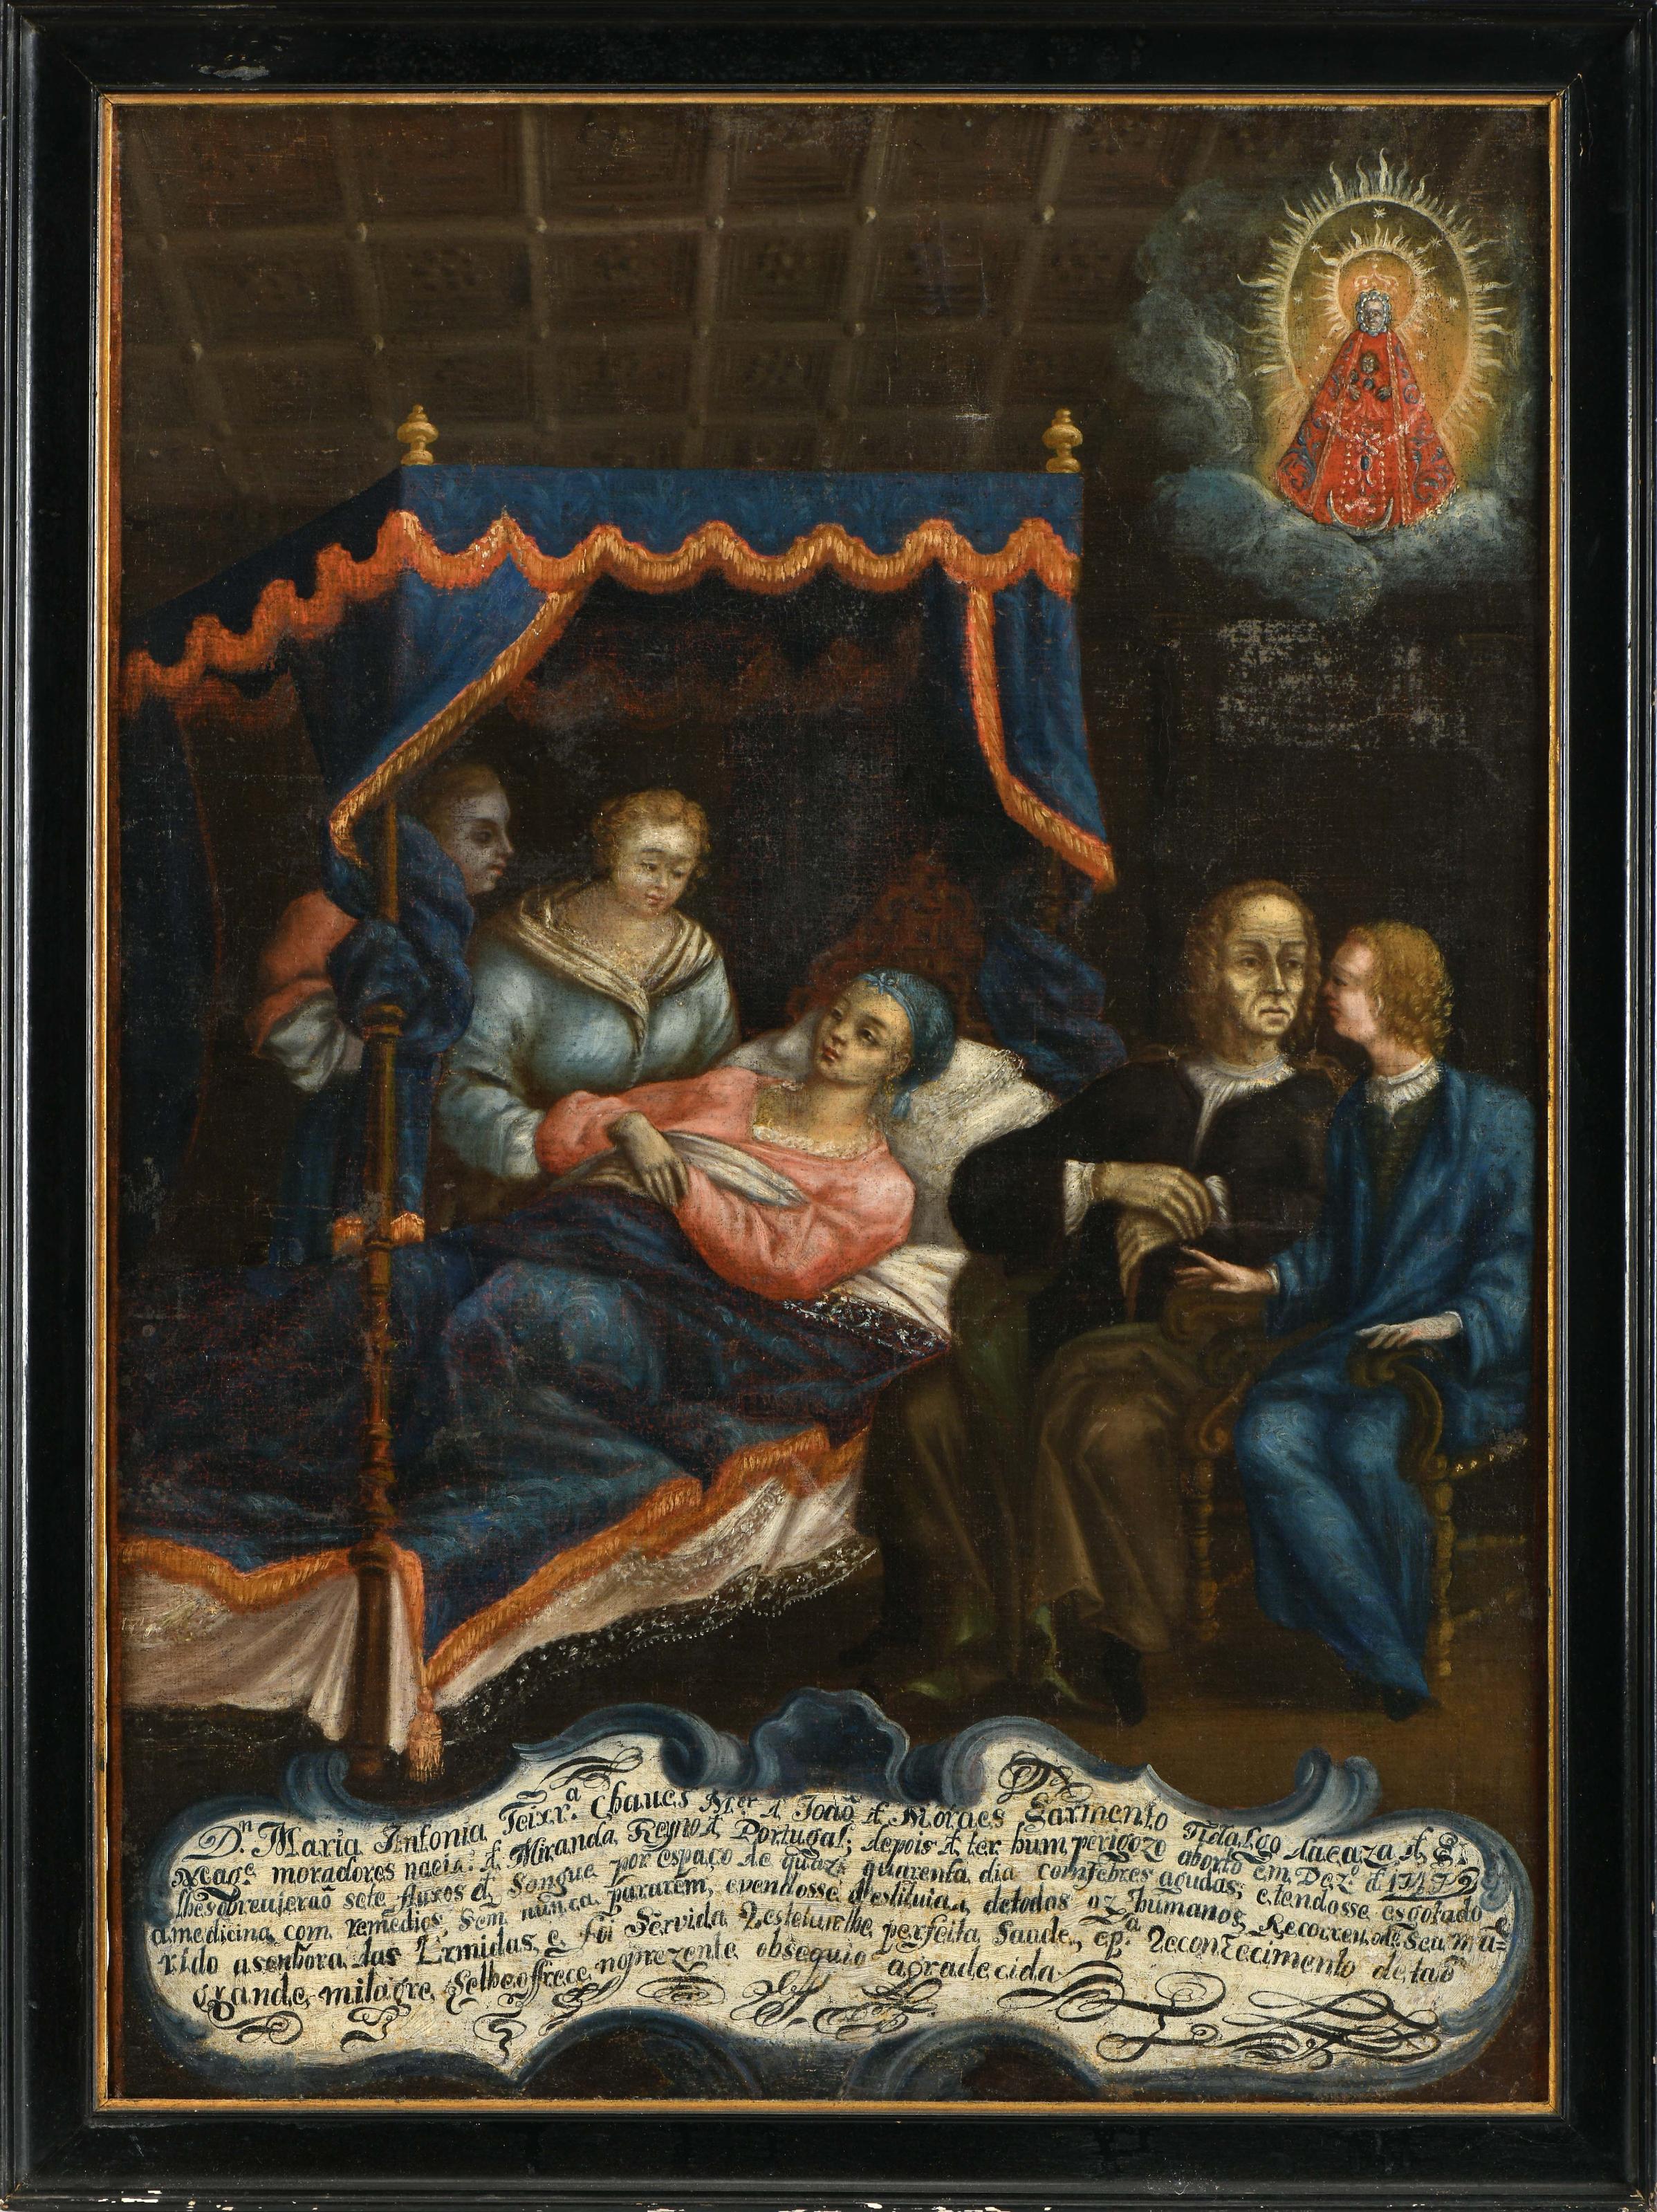 Dn. Maria Antonia Teixrª. Chaues Mer. d João d Moraes Sarmento Fidalgo daCaza d S.
Magᵉ. moradores nacidᵉ. d Miranda Reyno d Portugal; depois d ter hum perigozo aborto em Dezº. d 1747,
lhesobreujeraõ sete fluxos d Sangue por espaço de quazi quarenta dia comfebres agudas; etendosse esgotado
amedicina com remedios sem nunca pararem, evendosse destituida detodos oz humanos Recorreu ode Seu ma=
rido asenhora das Ermidas, e foi Servida Restetuirlhe perfeita Saude, epª. Reconhecimento detaõ
grande milagre Selheoffrece noprezente obsequio agradecida